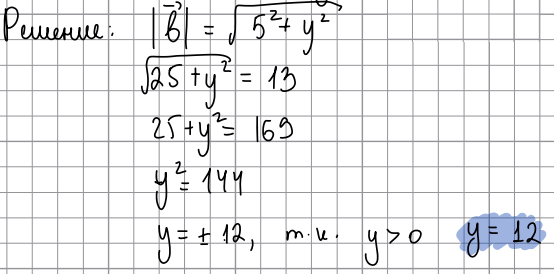 Решение: |b⃗| = √(5² + y²)
√(25 + y²) = 13
25 + y² = 169
y² = 144
y = ± 12, т.к. y > 0 y = 12